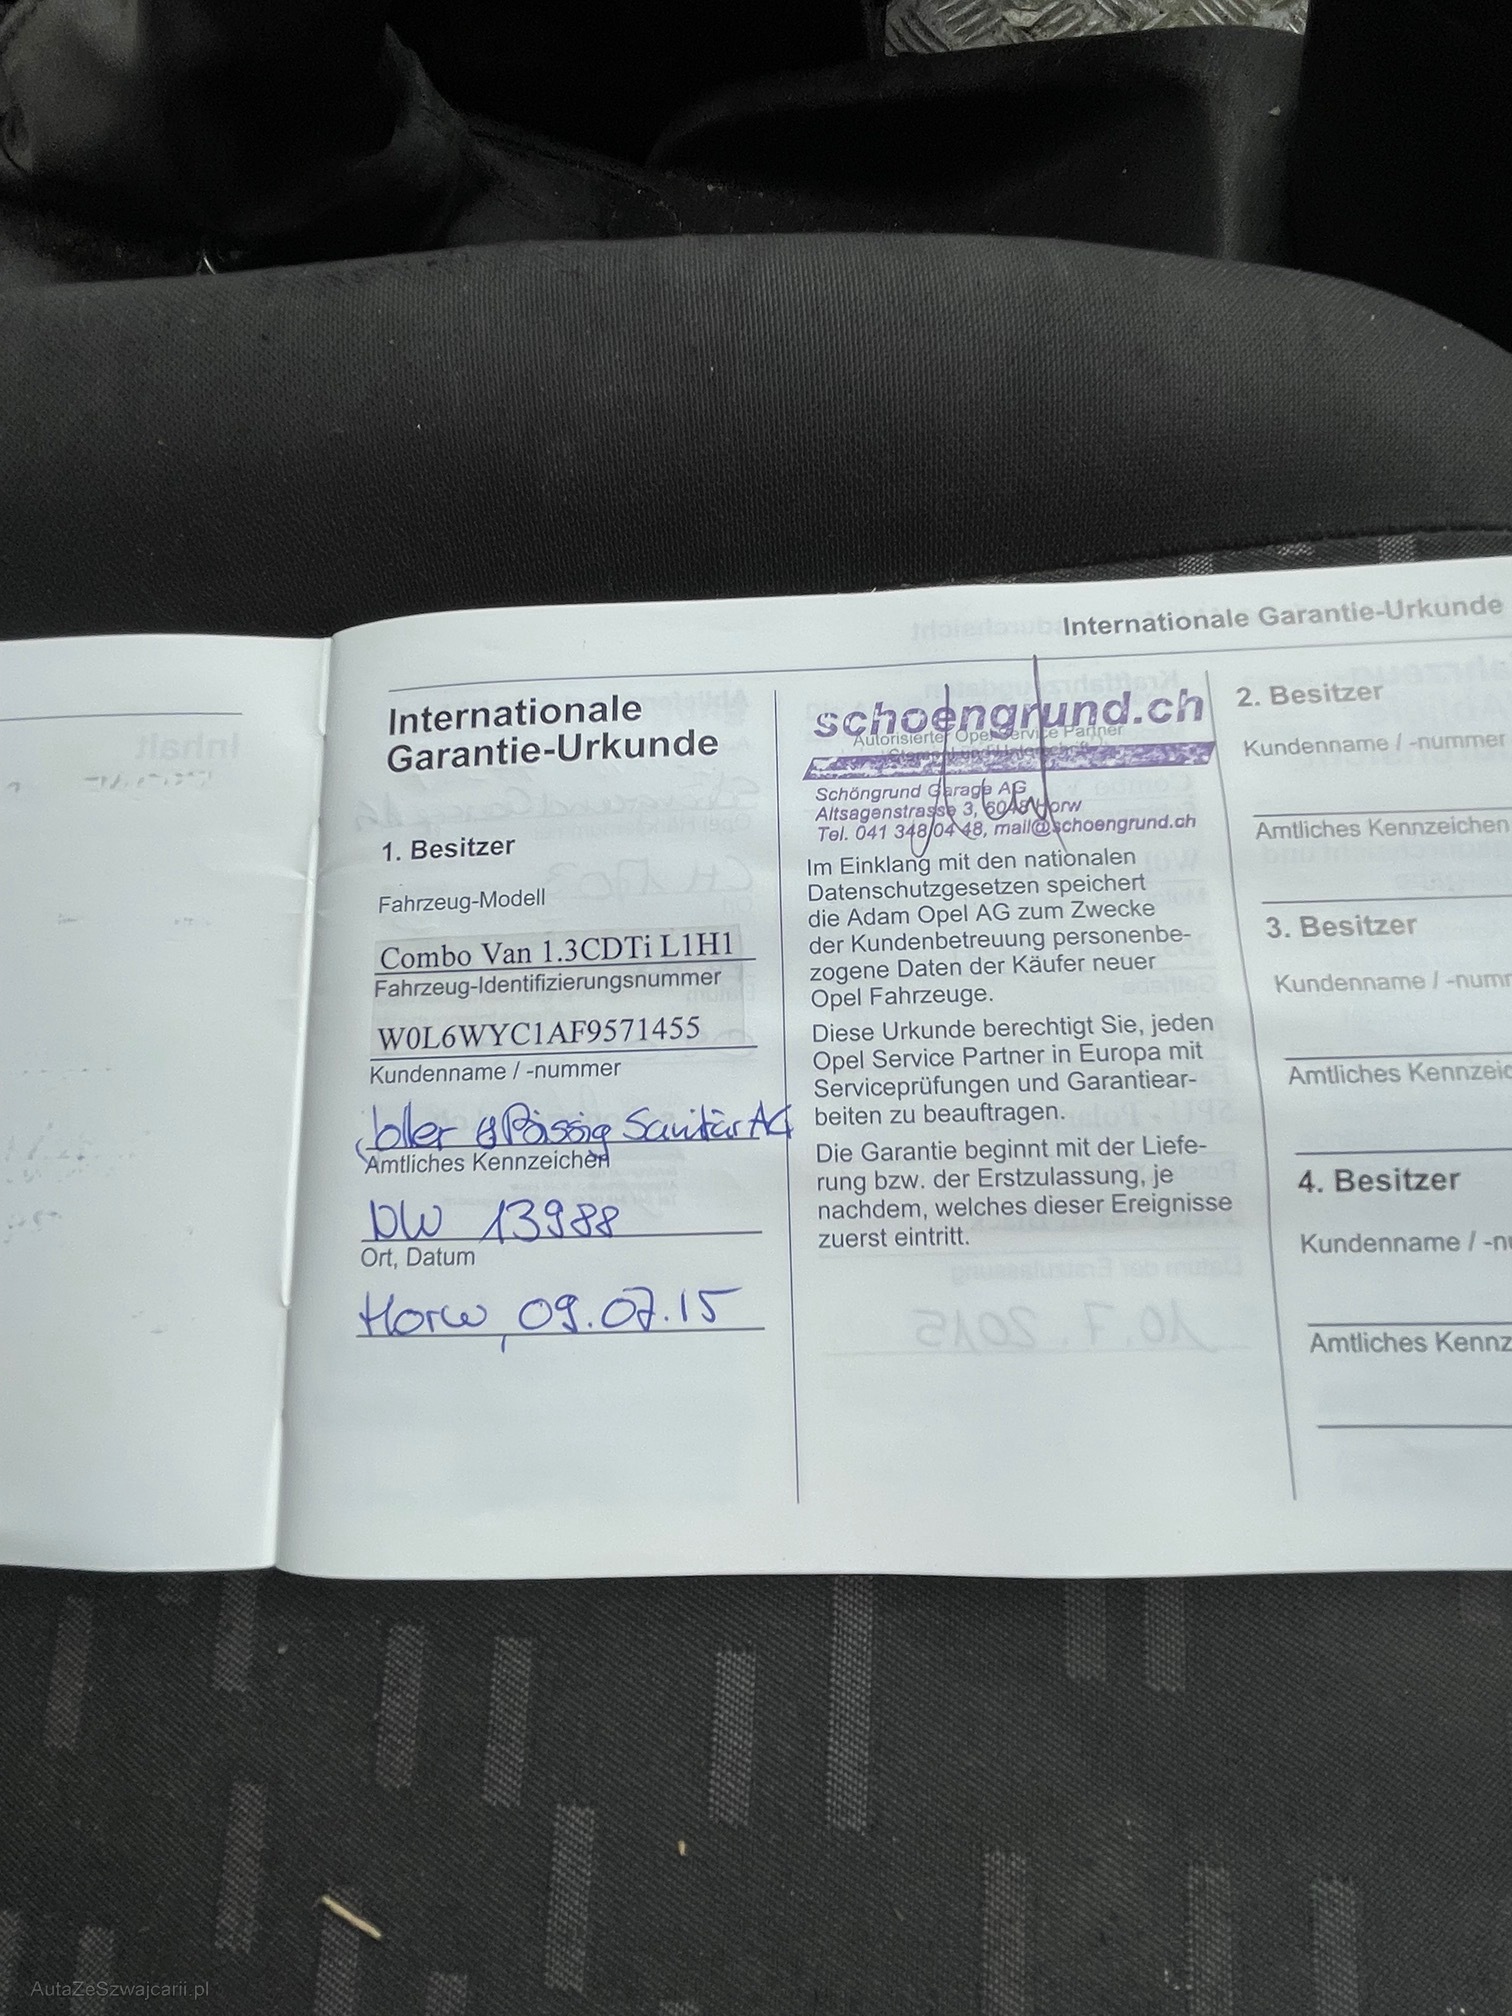 Internationale Garantie-Urkunde
Internationale
Garantie-Urkunde
1. Besitzer
Fahrzeug-Modell
Combo Van 1.3CDTi L1H1
Fahrzeug-Identifizierungsnummer
W0L6WYC1AF9571455
Kundenname / -nummer
Sanitär AG
Amtliches Kennzeichen
13988
Ort, Datum
Horw, 09.07.15
schoengrund.ch
Autorisierter Opel Service Partner
Schöngrund Garage AG
Altsagenstrasse 3, 6048 Horw
Tel. 041 348 04 48, mail@schoengrund.ch
Im Einklang mit den nationalen
Datenschutzgesetzen speichert
die Adam Opel AG zum Zwecke
der Kundenbetreuung personenbe-
zogene Daten der Käufer neuer
Opel Fahrzeuge.
Diese Urkunde berechtigt Sie, jeden
Opel Service Partner in Europa mit
Serviceprüfungen und Garantiear-
beiten zu beauftragen.
Die Garantie beginnt mit der Liefe-
rung bzw. der Erstzulassung, je
nachdem, welches dieser Ereignisse
zuerst eintritt.
2. Besitzer
Kundenname / -nummer
Amtliches Kennzeichen
3. Besitzer
Kundenname / -numm
Amtliches Kennzeic
4. Besitzer
Kundenname / -nu
Amtliches Kennz
AutaZeSzwajcarii.pl